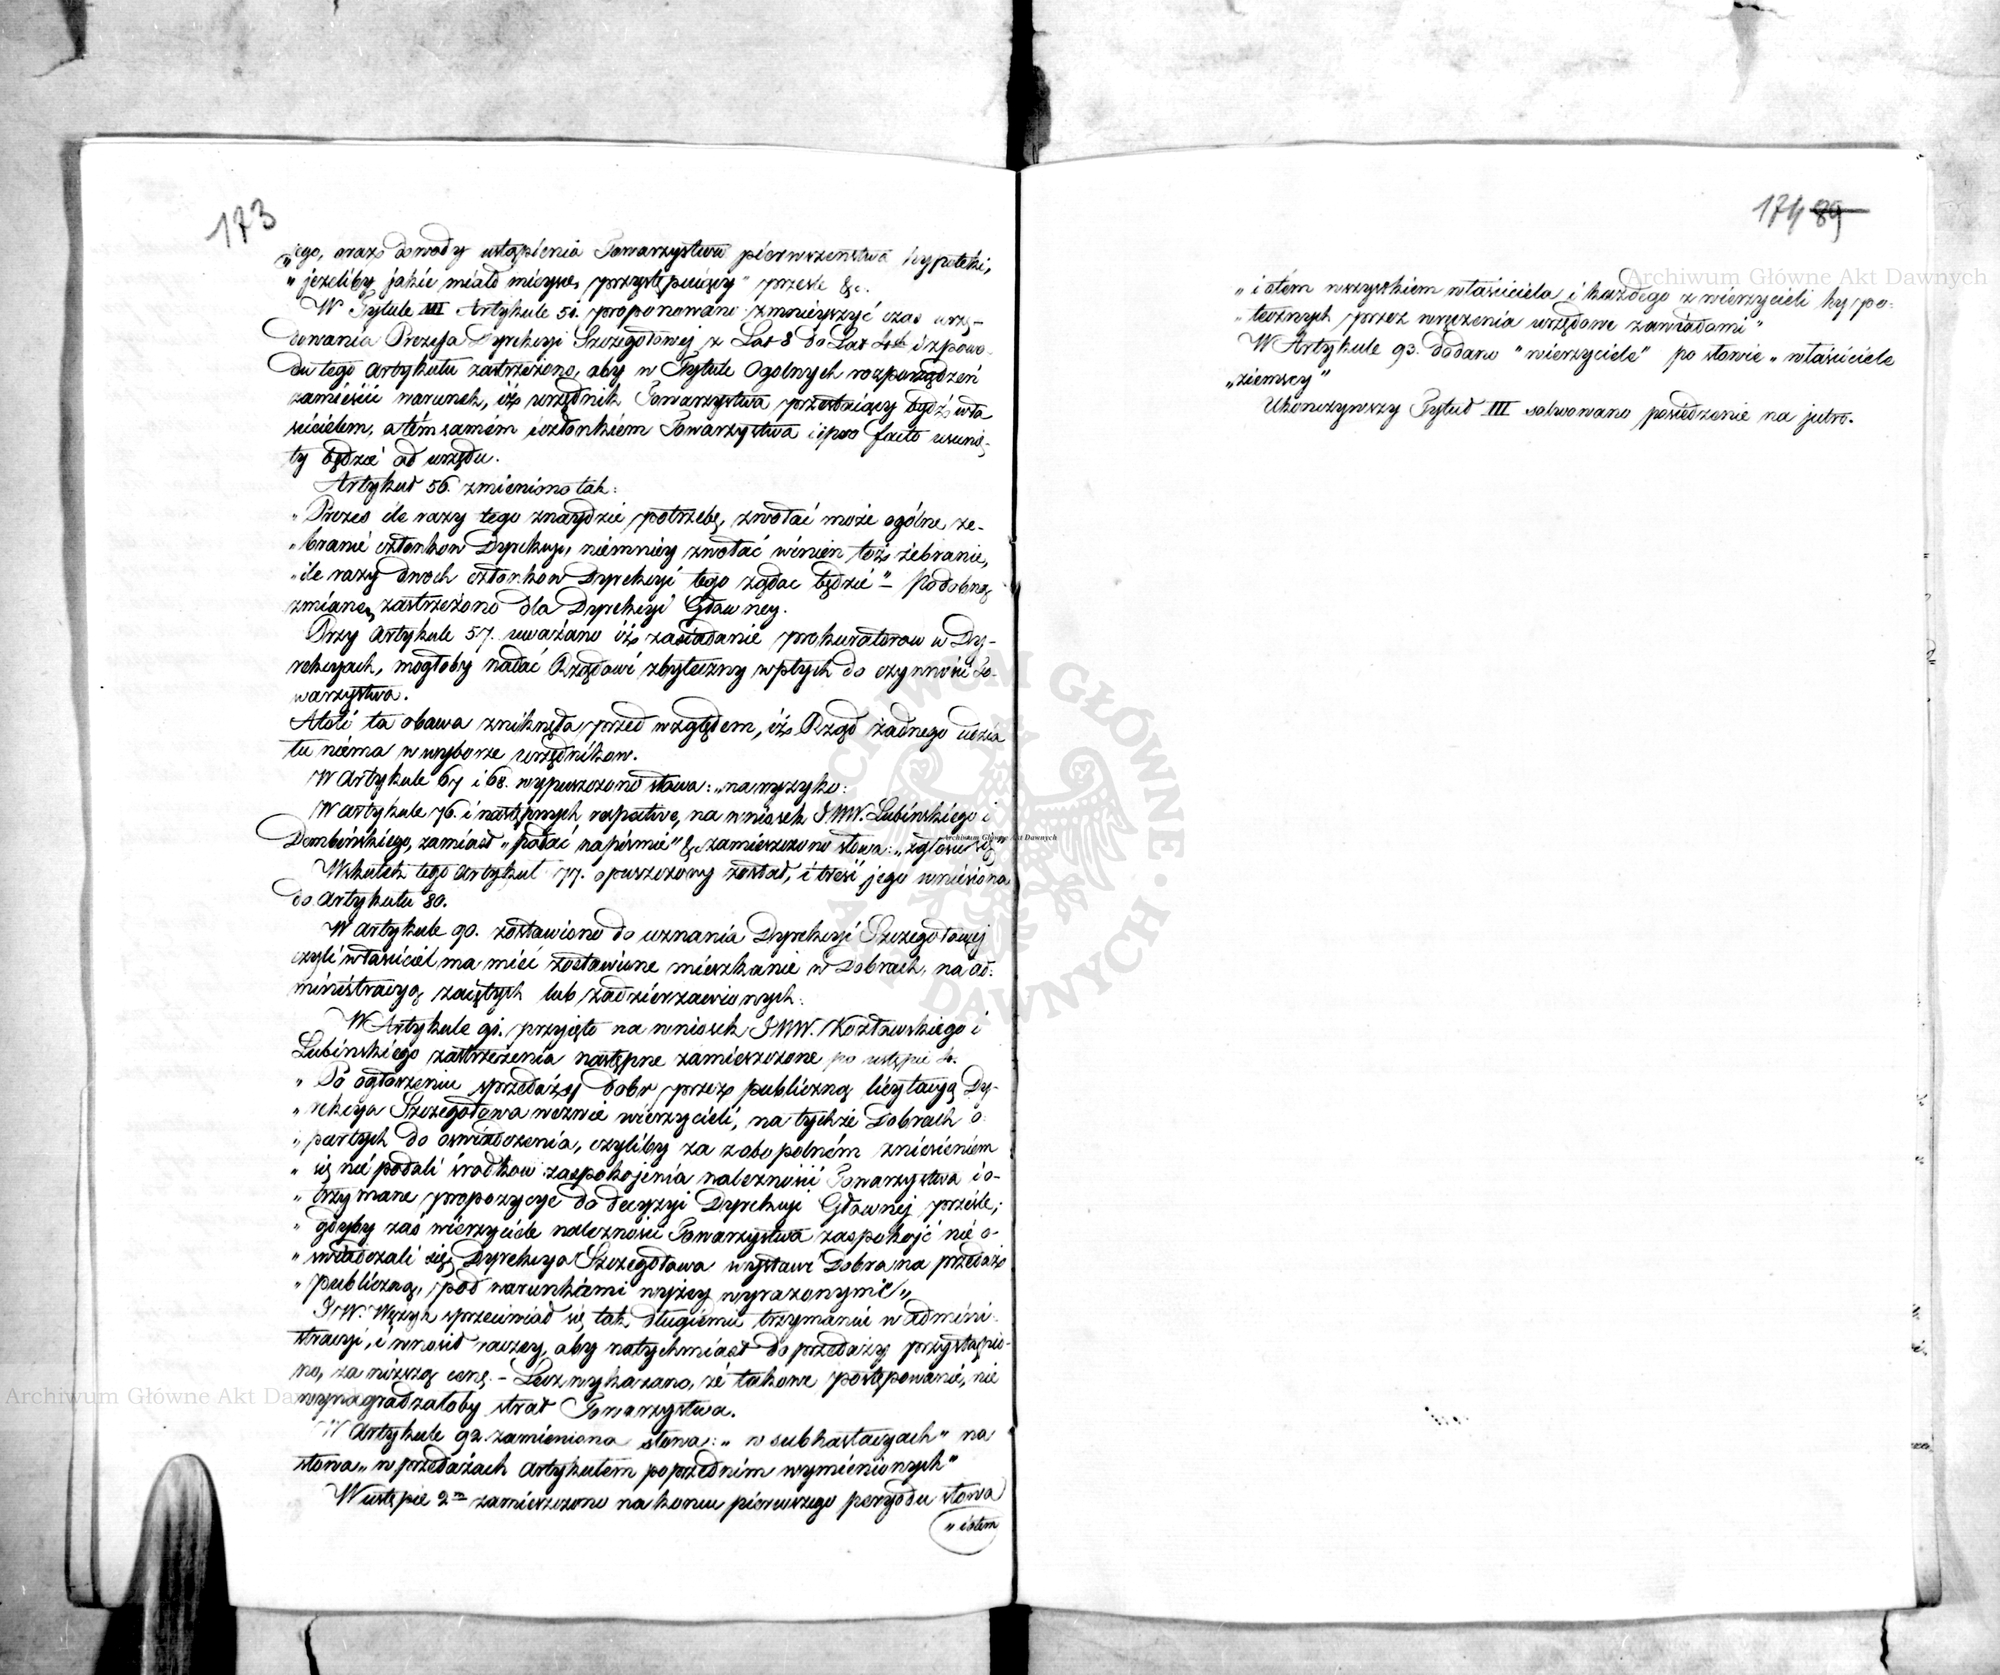 173
„jego, oraz dowody ustąpienia Towarzystwu pierwszeństwa hypoteki,
„jeżeliby jakie miało mieysce, przystępuiący" prześle &c.
W Tytule III Artykule 51. proponowano zmnieyszyć czas urzę-
dowania Prezesa Dyrekcyi Szczegółowej z Lat 8 do Lat 4ch i z powo-
du tego Artykułu zastrzeżono, aby w Tytule Ogólnych rozporządzeń
zamieścić warunek, iż urzędnik Towarzystwa przestaiący bydź wła
ścicielem, a tém samém członkiem Towarzystwa ipso facto usunię-
ty będzie od urzędu.
Artykuł 56. zmieniono tak:
„Prezes ile razy tego znaydzie potrzebę, zwołać może ogólne ze-
„branie członków Dyrekcyi, niemniéy zwołać winien toż zebranie,
„ile razy dwóch członków Dyrekcyi tego żądać będzie" – Podobną
zmianę zastrzeżono dla Dyrekcyi Głowney.
Przy Artykule 57. uważano iż zasiadanie prokuratorow w Dy-
rekcyach, mogłoby nadać Rządowi zbyteczny wpływ do czynności To-
warzystwa.
Atoli ta obawa zniknęła, przed względem, iż Rząd żadnego udzia
łu niema w wyborze urzędników.
W Artykule 67 i 68. wypuszczono słowa: „na wyzyko:
W artykule 76. i następnych respective, na wniosek JWW. Lubińskiego i
Dembińskiego, zamiast „podać na piśmie" &c zamieszczono słowa: „zgłosić się"
Wskutek tego Artykuł 77. opuszczony został, i treść jego wniesiona
do Artykułu 80.
W Artykule 90. zostawiono do uznania Dyrekcyi Szczegółowej
czyli właściciel ma mieć zostawione mieszkanie w Dobrach, na ad:
ministracyą zaiętych lub zadzierzawionych:
W Artykule 91. przyjęto na wniosek JWW. Kozłowskiego i
Lubińskiego zastrzeżenia następne zamieszczone po ustępie 4.
„Po ogłoszeniu sprzedaży Dobr przez publiczną licytacyą Dy-
„rekcya Szczegółowa wezwie wierzycieli, na tychże Dobrach o:
„partych do oświadczenia, czyliby za zobopolném zniesieniem
„się nie podali środkow zaspokojenia należności Towarzystwa i o-
„trzymane propozycye do decyzyi Dyrekcyi Głównej prześle;
„gdyby zaś wierzyciele należności Towarzystwa zaspokoić nie o-
„świadczali się, Dyrekcya Szczegółowa wystawi Dobra na przedaż
„publiczną, pod warunkami wyżey wyrażonymi",
JW. Wężyk sprzeciwiał się tak długiemu trzymaniu w admini:
stracyi, i wnosił raczey, aby natychmiast do przedaży przystąpio-
no, za niższą cenę. – Lecz wykazano, że takowe postępowanie, nie
wynagradzałoby strat Towarzystwa.
W Artykule 92. zamieniono słowa: „w subhastacyach" na
słowa „w przedażach Artykułem poprzednim wymienionych"
W ustępie 2m zamieszczono na końcu pierwszego peryodu słowa
„i otem
174 89
„i otém wszystkiem właściciela i każdego z wierzycieli hypo:
„tecznych przez wręczenia urzędowe zawiadomi"
W Artykule 93. dodano „wierzyciele" po słowie „właściciele
„ziemscy"
Ukończywszy Tytuł III solwowano posiedzenie na jutro.
Archiwum Główne Akt Dawnych
Archiwum Główne Akt Dawnych
Archiwum Główne Akt Dawnych
ARCHIWUM GŁÓWNE AKT DAWNYCH